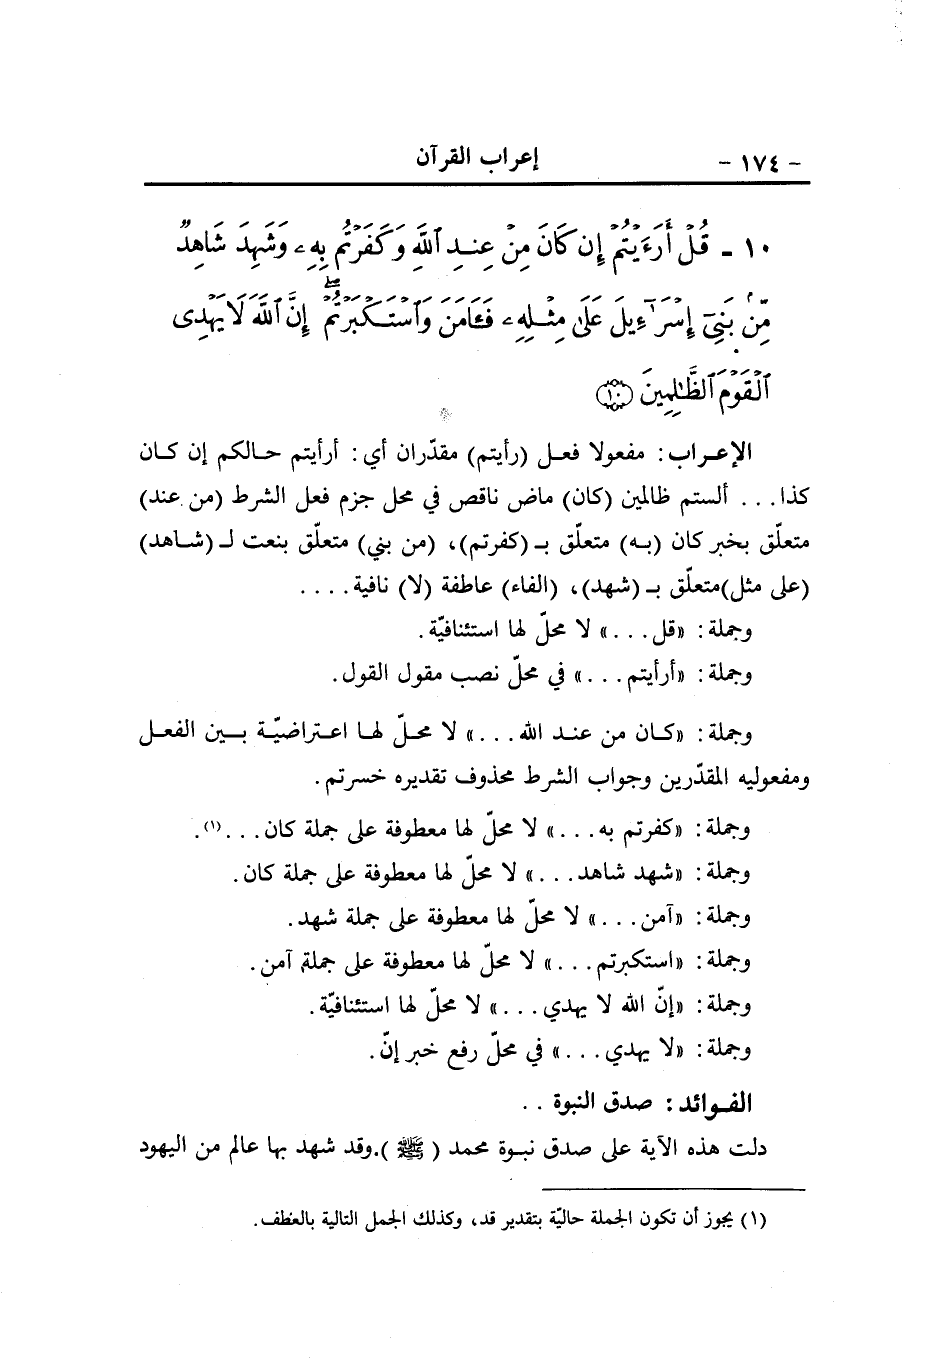 - ١٧٤ - إعراب القرآن
١٠ - قُلْ أَرَءَيْتُمْ إِن كَانَ مِنْ عِندِ ٱللَّهِ وَكَفَرْتُم بِهِۦ وَشَهِدَ شَاهِدٌ
مِّنۢ بَنِىٓ إِسْرَٰٓءِيلَ عَلَىٰ مِثْلِهِۦ فَـَٔامَنَ وَٱسْتَكْبَرْتُمْ ۖ إِنَّ ٱللَّهَ لَا يَهْدِى
ٱلْقَوْمَ ٱلظَّٰلِمِينَ ﴿١٠﴾
الإعـراب: مفعولا فعـل (رأيتم) مقدّران أي: أرأيتم حـالكم إن كـان
كذا... ألستم ظالمين (كان) ماض ناقص في محل جزم فعل الشرط (من عند)
متعلّق بخبر كان (بـه) متعلّق بـ (كفرتم)، (من بني) متعلّق بنعت لـ (شـاهد)
(على مثل)متعلّق بـ (شهد)، (الفاء) عاطفة (لا) نافية....
وجملة: «قل...» لا محلّ لها استئنافيّة.
وجملة: «أرأيتم...» في محلّ نصب مقول القول.
وجملة: «كـان من عنـد الله...» لا محـلّ لهـا اعـتراضيّـة بـين الفعـل
ومفعوليه المقدّرين وجواب الشرط محذوف تقديره خسرتم.
وجملة: «كفرتم به...» لا محلّ لها معطوفة على جملة كان...(١).
وجملة: «شهد شاهد...» لا محلّ لها معطوفة على جملة كان.
وجملة: «آمن...» لا محلّ لها معطوفة على جملة شهد.
وجملة: «استكبرتم...» لا محلّ لها معطوفة على جملة آمن.
وجملة: «إنّ الله لا يهدي...» لا محلّ لها استئنافيّة.
وجملة: «لا يهدي...» في محلّ رفع خبر إنّ.
الفـوائد: صدق النبوة ..
دلت هذه الآية على صدق نبـوة محمد ( ﷺ ).وقد شهد بها عالم من اليهود
(١) يجوز أن تكون الجملة حاليّة بتقدير قد، وكذلك الجمل التالية بالعطف.